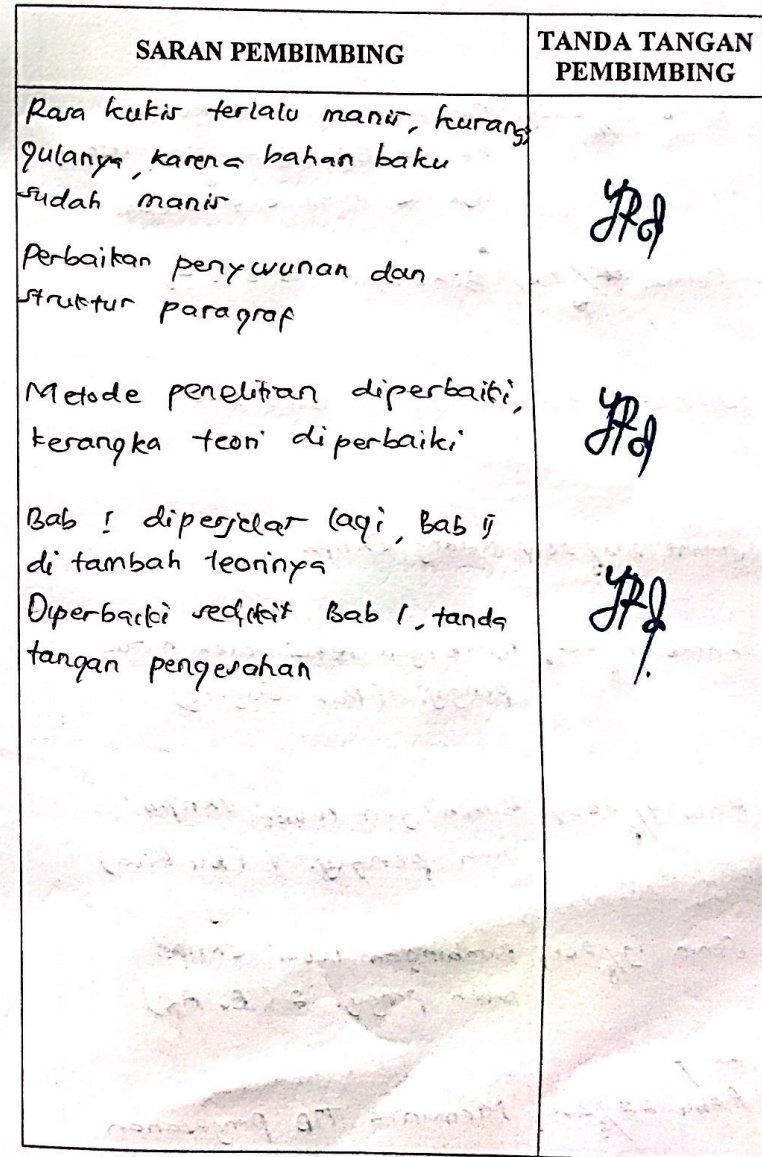 SARAN PEMBIMBING
TANDA TANGAN
PEMBIMBING
Rasa kukis terlalu manis, kurangi
gulanya, karena bahan baku
sudah manis
Perbaikan penyusunan dan
struktur paragraf
Metode penelitian diperbaiki,
kerangka teori diperbaiki
Bab I diperjelas lagi, Bab ii
di tambah teorinya
Diperbaiki sedikit Bab I, tanda
tangan pengesahan